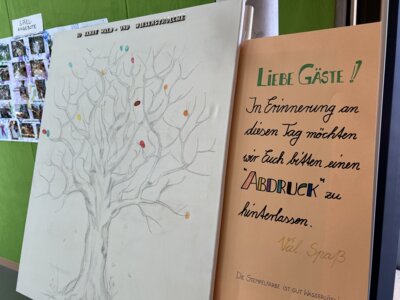 10 JAHRE WALD- UND WIESENSTROLCHE
LIEBE GÄSTE!
In Erinnerung an
diesen Tag möchten
wir Euch bitten einen
"ABDRUCK" zu
hinterlassen.
Väl Spaß
DIE STEMPELFARBE IST GUT